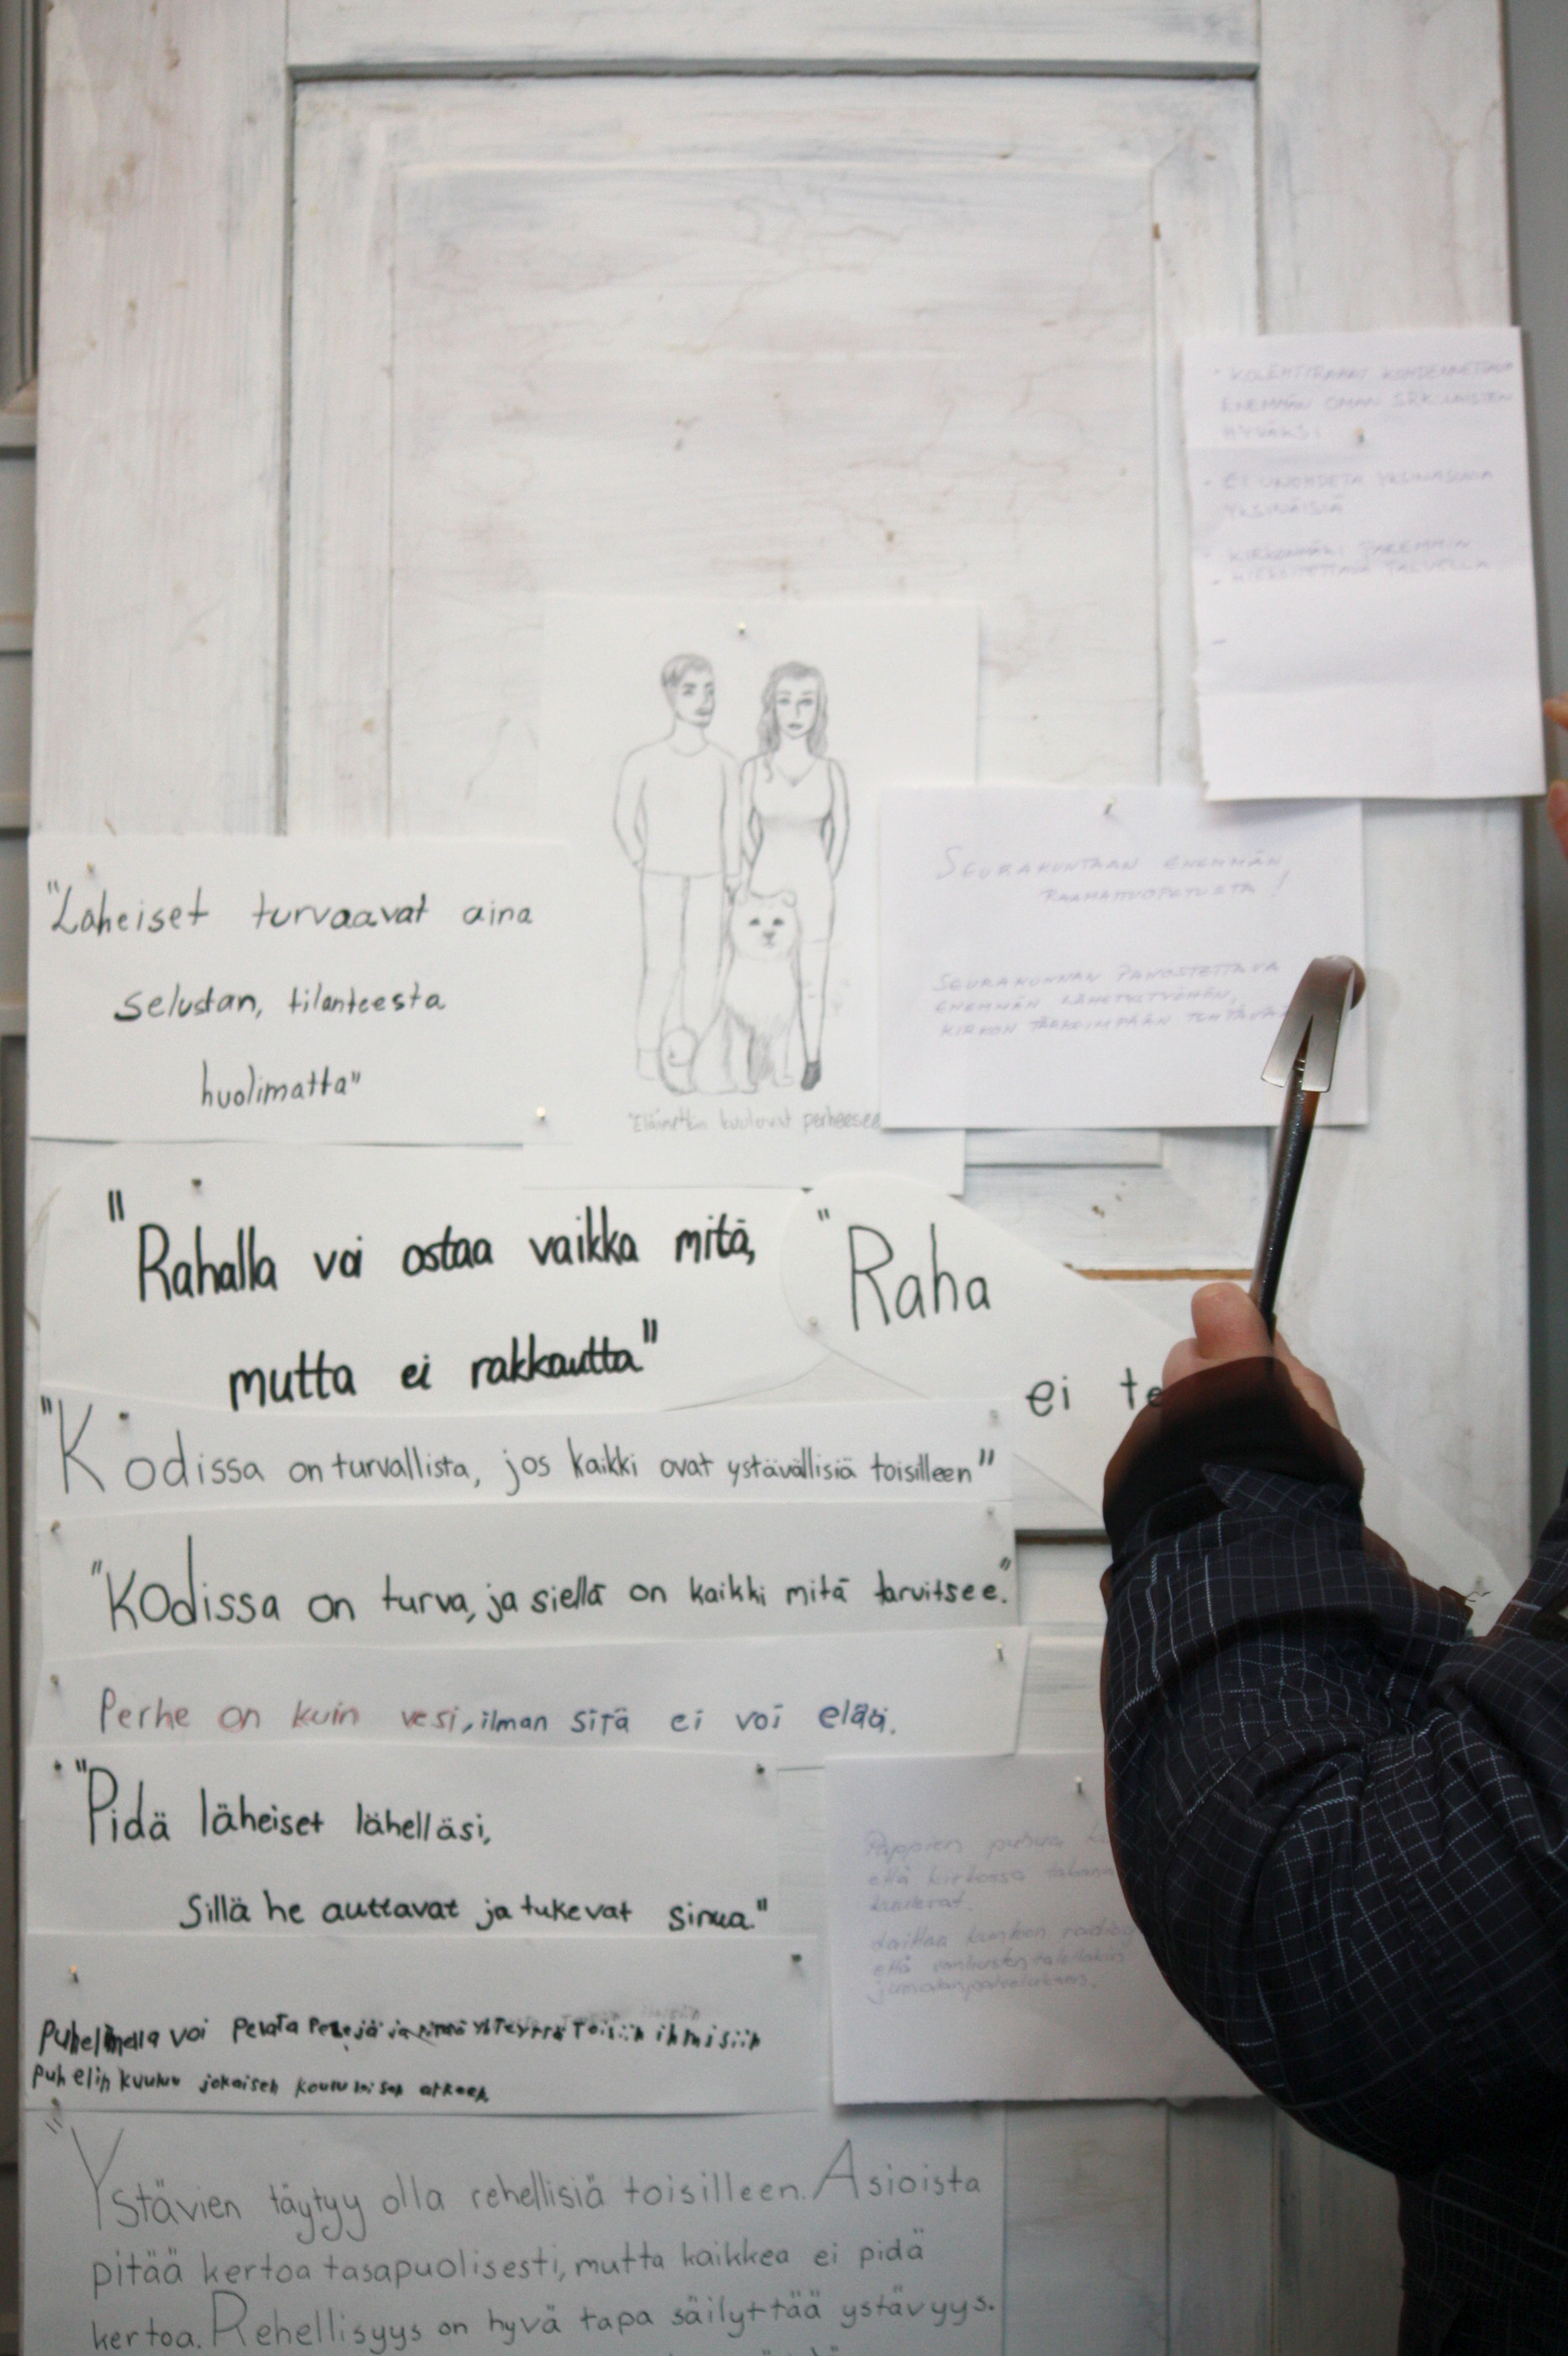 • KOLEHTIRAHAT KOHDENNETTAVA
ENEMMÄN OMAN SRK:LAISTEN
HYVÄKSI
• EI UNOHDETA YKSINASUVIA
YKSINÄISIÄ
• KIRKONMÄKI PAREMMIN
HIEKOITETTAVA TALVELLA
SEURAKUNTAAN ENEMMÄN
RAAMATTUOPETUSTA!
SEURAKUNNAN PANOSTETTAVA
ENEMMÄN LÄHETYSTYÖHÖN,
KIRKON TÄRKEIMPÄÄN TEHTÄVÄÄ
"Eläimetkin kuuluvat perheesee
"Läheiset turvaavat aina
selustan, tilanteesta
huolimatta"
"Rahalla voi ostaa vaikka mitä,
mutta ei rakkautta"
"Raha
ei te
"Kodissa on turvallista, jos kaikki ovat ystävällisiä toisilleen"
"Kodissa on turva, ja siellä on kaikki mitä tarvitsee."
Perhe on kuin vesi, ilman sitä ei voi elää.
"Pidä läheiset lähelläsi,
Sillä he auttavat ja tukevat sinua."
Pappien puhua
että kirkossa
että
jumalanpalveluksen.
Puhelimella voi pelata pelejä ja yhteyttä toisiin ihmisiin
puhelin kuuluu jokaisen koululaisen arkeen
"Ystävien täytyy olla rehellisiä toisilleen. Asioista
pitää kertoa tasapuolisesti, mutta kaikkea ei pidä
kertoa. Rehellisyys on hyvä tapa säilyttää ystävyys.